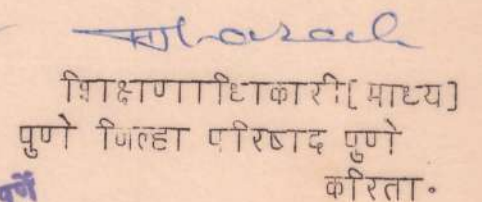 शिक्षणाधिकारी[माध्य]
पुणे जिल्हा परिषद पुणे
करिता.